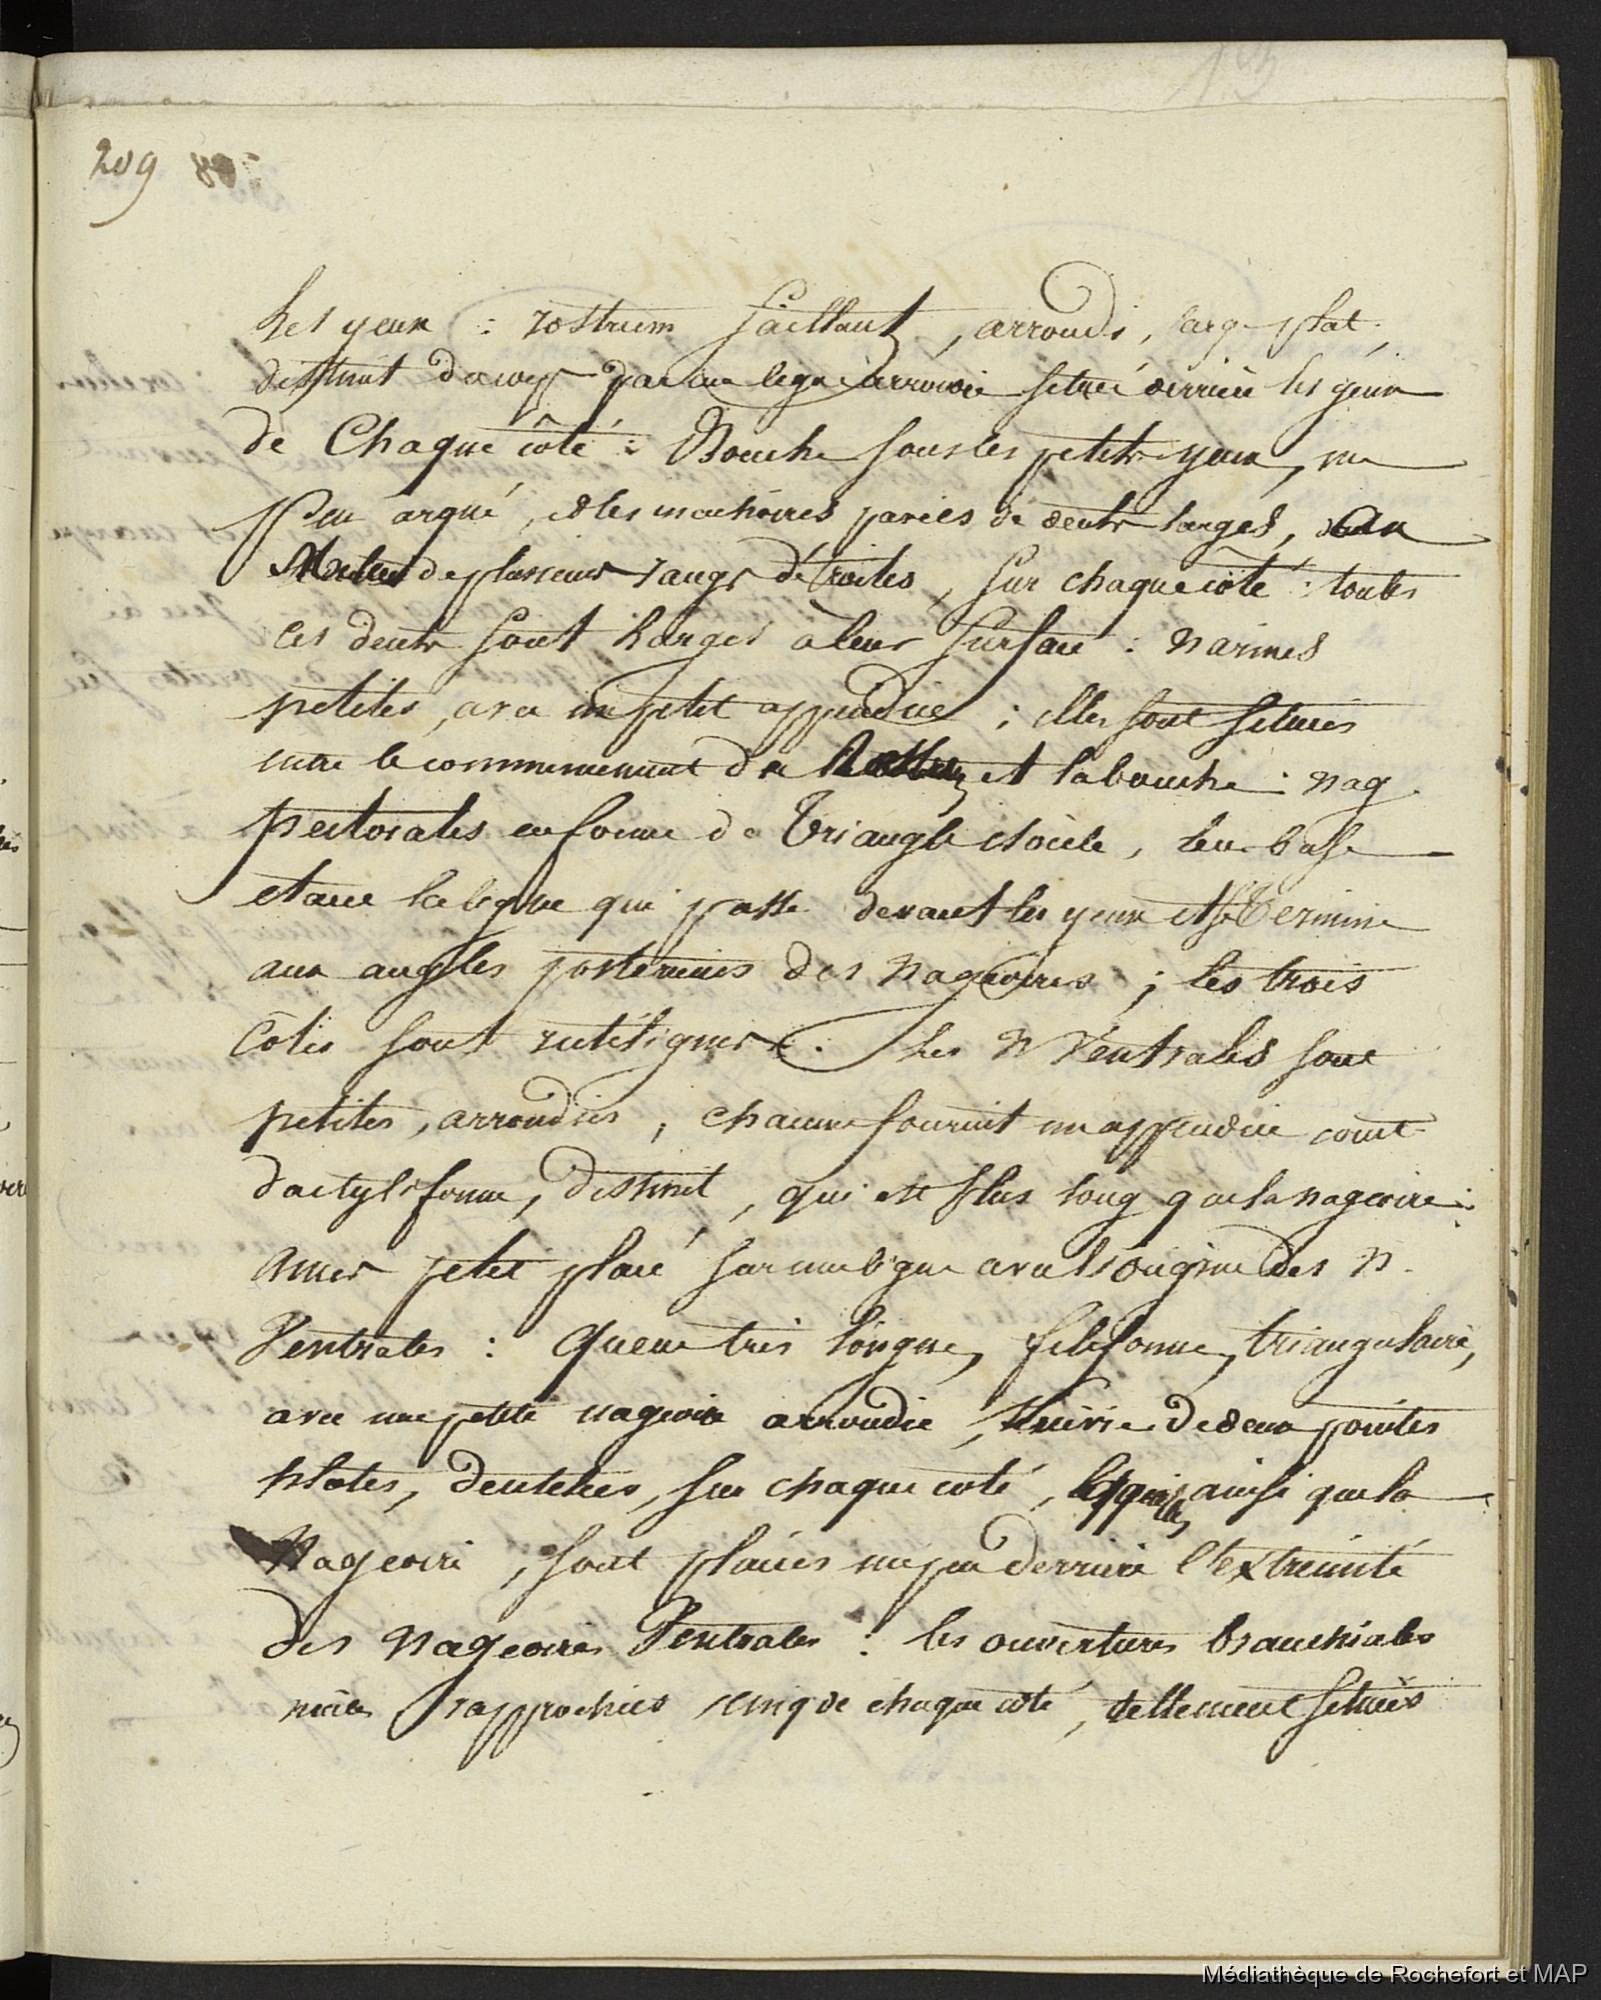 209
les yeux : rostrum saillant, arrondi, large plat,
distinct du corps par une ligne arrondie située derrière les yeux
de Chaque côté : Bouche sous les petits yeux, un
Peu arqué, et les machoires pavées de dents larges, au
Milieu de plusieurs rangs d'étroites, sur chaque côté : toutes
ces dents sont larges à leur surface : narines
petites, avec un petit appendice ; elles sont situées
entre le commencement du Rostre et la bouche : nag.
pectorales en forme de Triangle isocèle, leur base
etant la ligne qui passe devant les yeux et se Termine
aux angles posterieurs des nageoires ; les trois
Côtés sont rectilignes. Les N Ventrales sont
petites, arrondies, chacune fournit un appendice court
dactyliforme, distinct, qui est plus long que la nageoire :
Anus petit placé sur une ligne avec l'origine des N.
Ventrales : Queue très longue, filiforme, triangulaire,
avec une petite nageoire arrondie, suivie de deux pointes
plates, dentelées, sur chaque coté, lesquelles, ainsi que la
Nageoire, sont placées un peu derriere l'extremité
des Nageoires Ventrales : les ouvertures branchiales
rapprochées cinq de chaque coté, tellement situées
Médiathèque de Rochefort et MAP